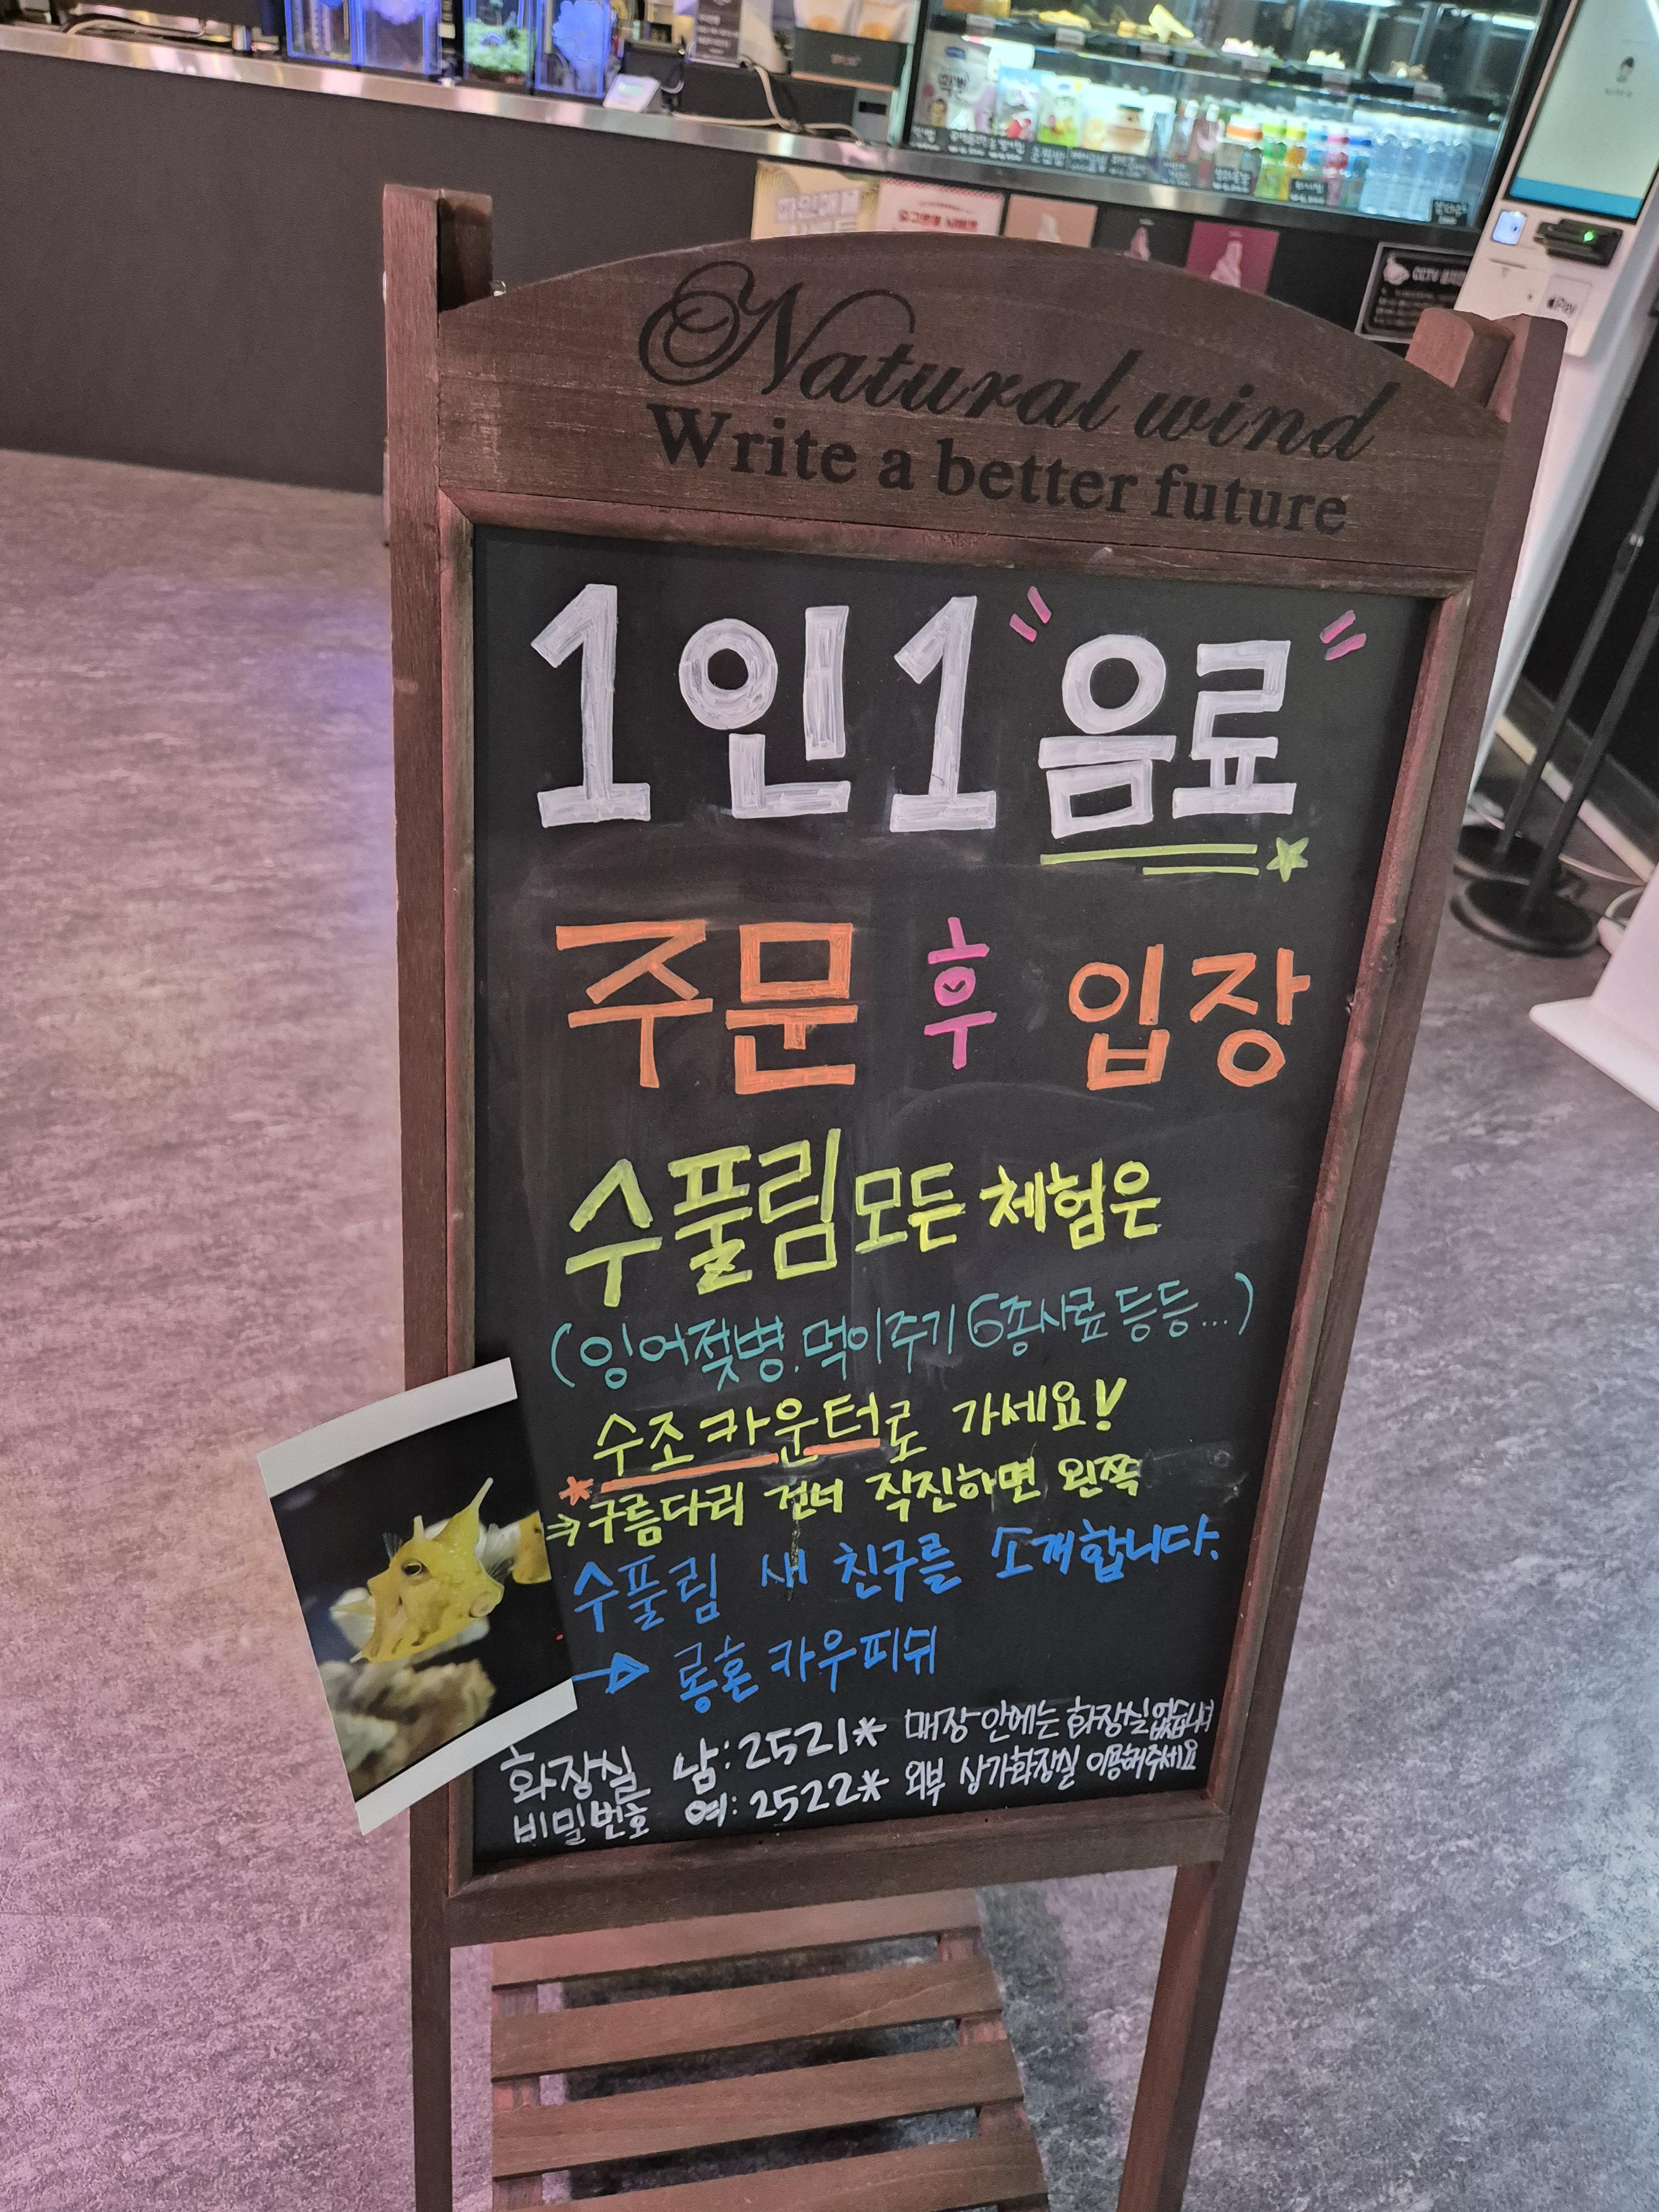 Natural wind
Write a better future
1인 1 "음료"
주문 후 입장
수풀림 모든 체험은
(잉어젖병. 먹이주기 6종사료 등등...)
수조 카운터로 가세요!
*⇒구름다리 건너 직진하면 왼쪽
수풀림 새 친구를 소개합니다.
→ 롱혼 카우피쉬
화장실 비밀번호
남: 2521* 매장 안에는 화장실 없습니다
여: 2522* 외부 상가화장실 이용해주세요
CCTV
Pay